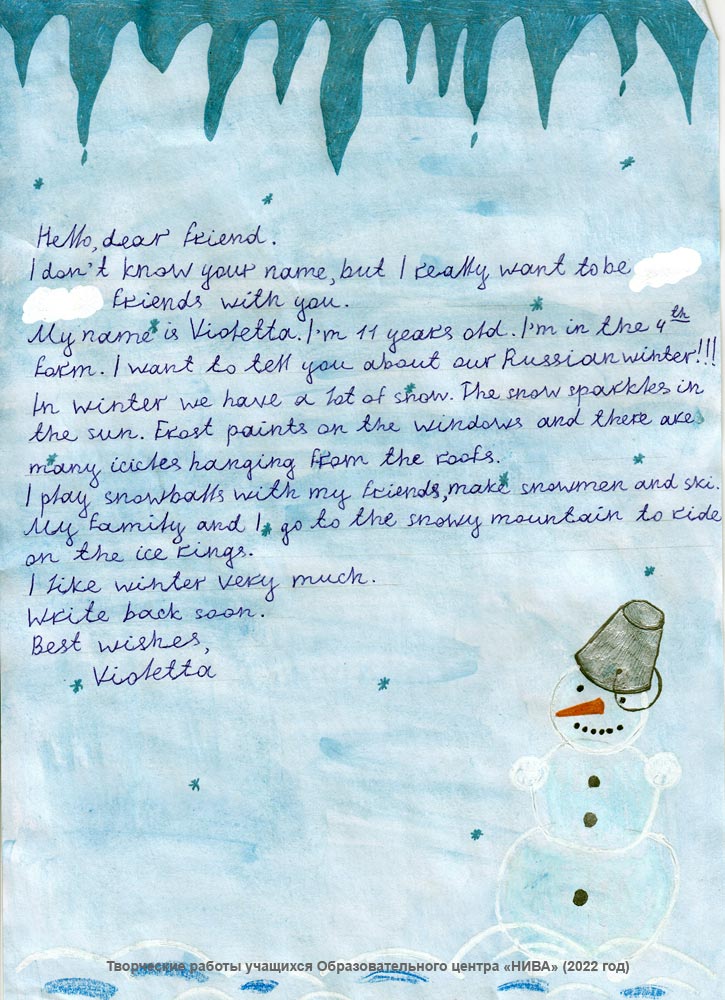 Hello, dear friend.
I don't know your name, but I really want to be
friends with you.
My name is Violetta. I'm 11 years old. I'm in the 4th
form. I want to tell you about our Russian winter!!!
In winter we have a lot of snow. The snow sparkles in
the sun. Frost paints on the windows and there are
many icicles hanging from the roofs.
I play snowballs with my friends, make snowmen and ski.
My family and I go to the snowy mountain to ride
on the ice rings.
I like winter very much.
Write back soon.
Best wishes,
Violetta
Творческие работы учащихся Образовательного центра «НИВА» (2022 год)